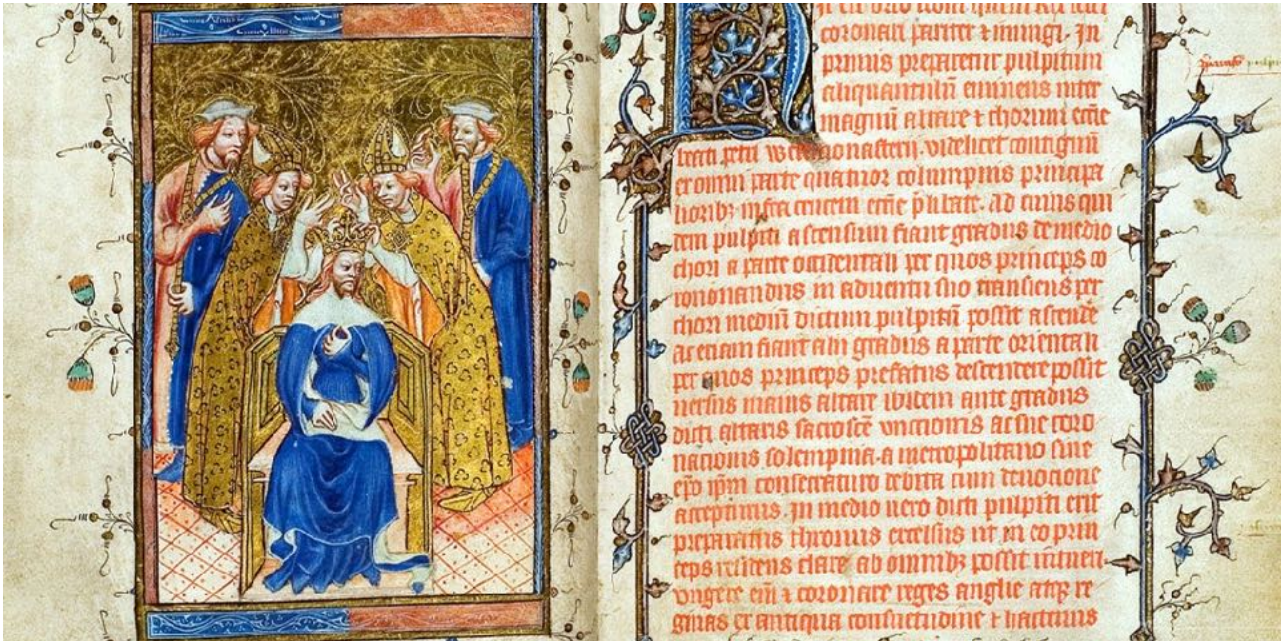 coronari pariter ⁊ inungi. In
primis preparetur pulpitum
aliquantulū eminens inter
magnū altare ⁊ chorum eccīe
beati petri westmonasterij. videlicet contiguū
ex omni parte quatuor columpnis principa
lioribꝫ infra crucem eccīe p̄libate. ad cuius qui
dem pulpiti ascensum fiant gradus de medio
chori a parte occidentali per quos princeps co
ronandus in aduentu suo transiens per
chori mediū dictum pulpitū possit ascende
ac etiam fiant alij gradus a parte orientali
per quos princeps prefatus descendere possit
uersus maius altare ibidem ante gradus
dicti altaris sacrosc̄e vnctionis ac sue coro
nationis solempnia. a metropolitano siue
ep̄o ip̄m consecraturo debita cum deuocione
accepturus. In medio uero dicti pulpiti erit
preparatus thronus excelsus ut in eo prin
ceps residens clare ab omnibꝫ possit intueri
vngere eni ⁊ coronare reges anglie atqꝫ re
ginas ex antiqua consuetudine ⁊ hactenus